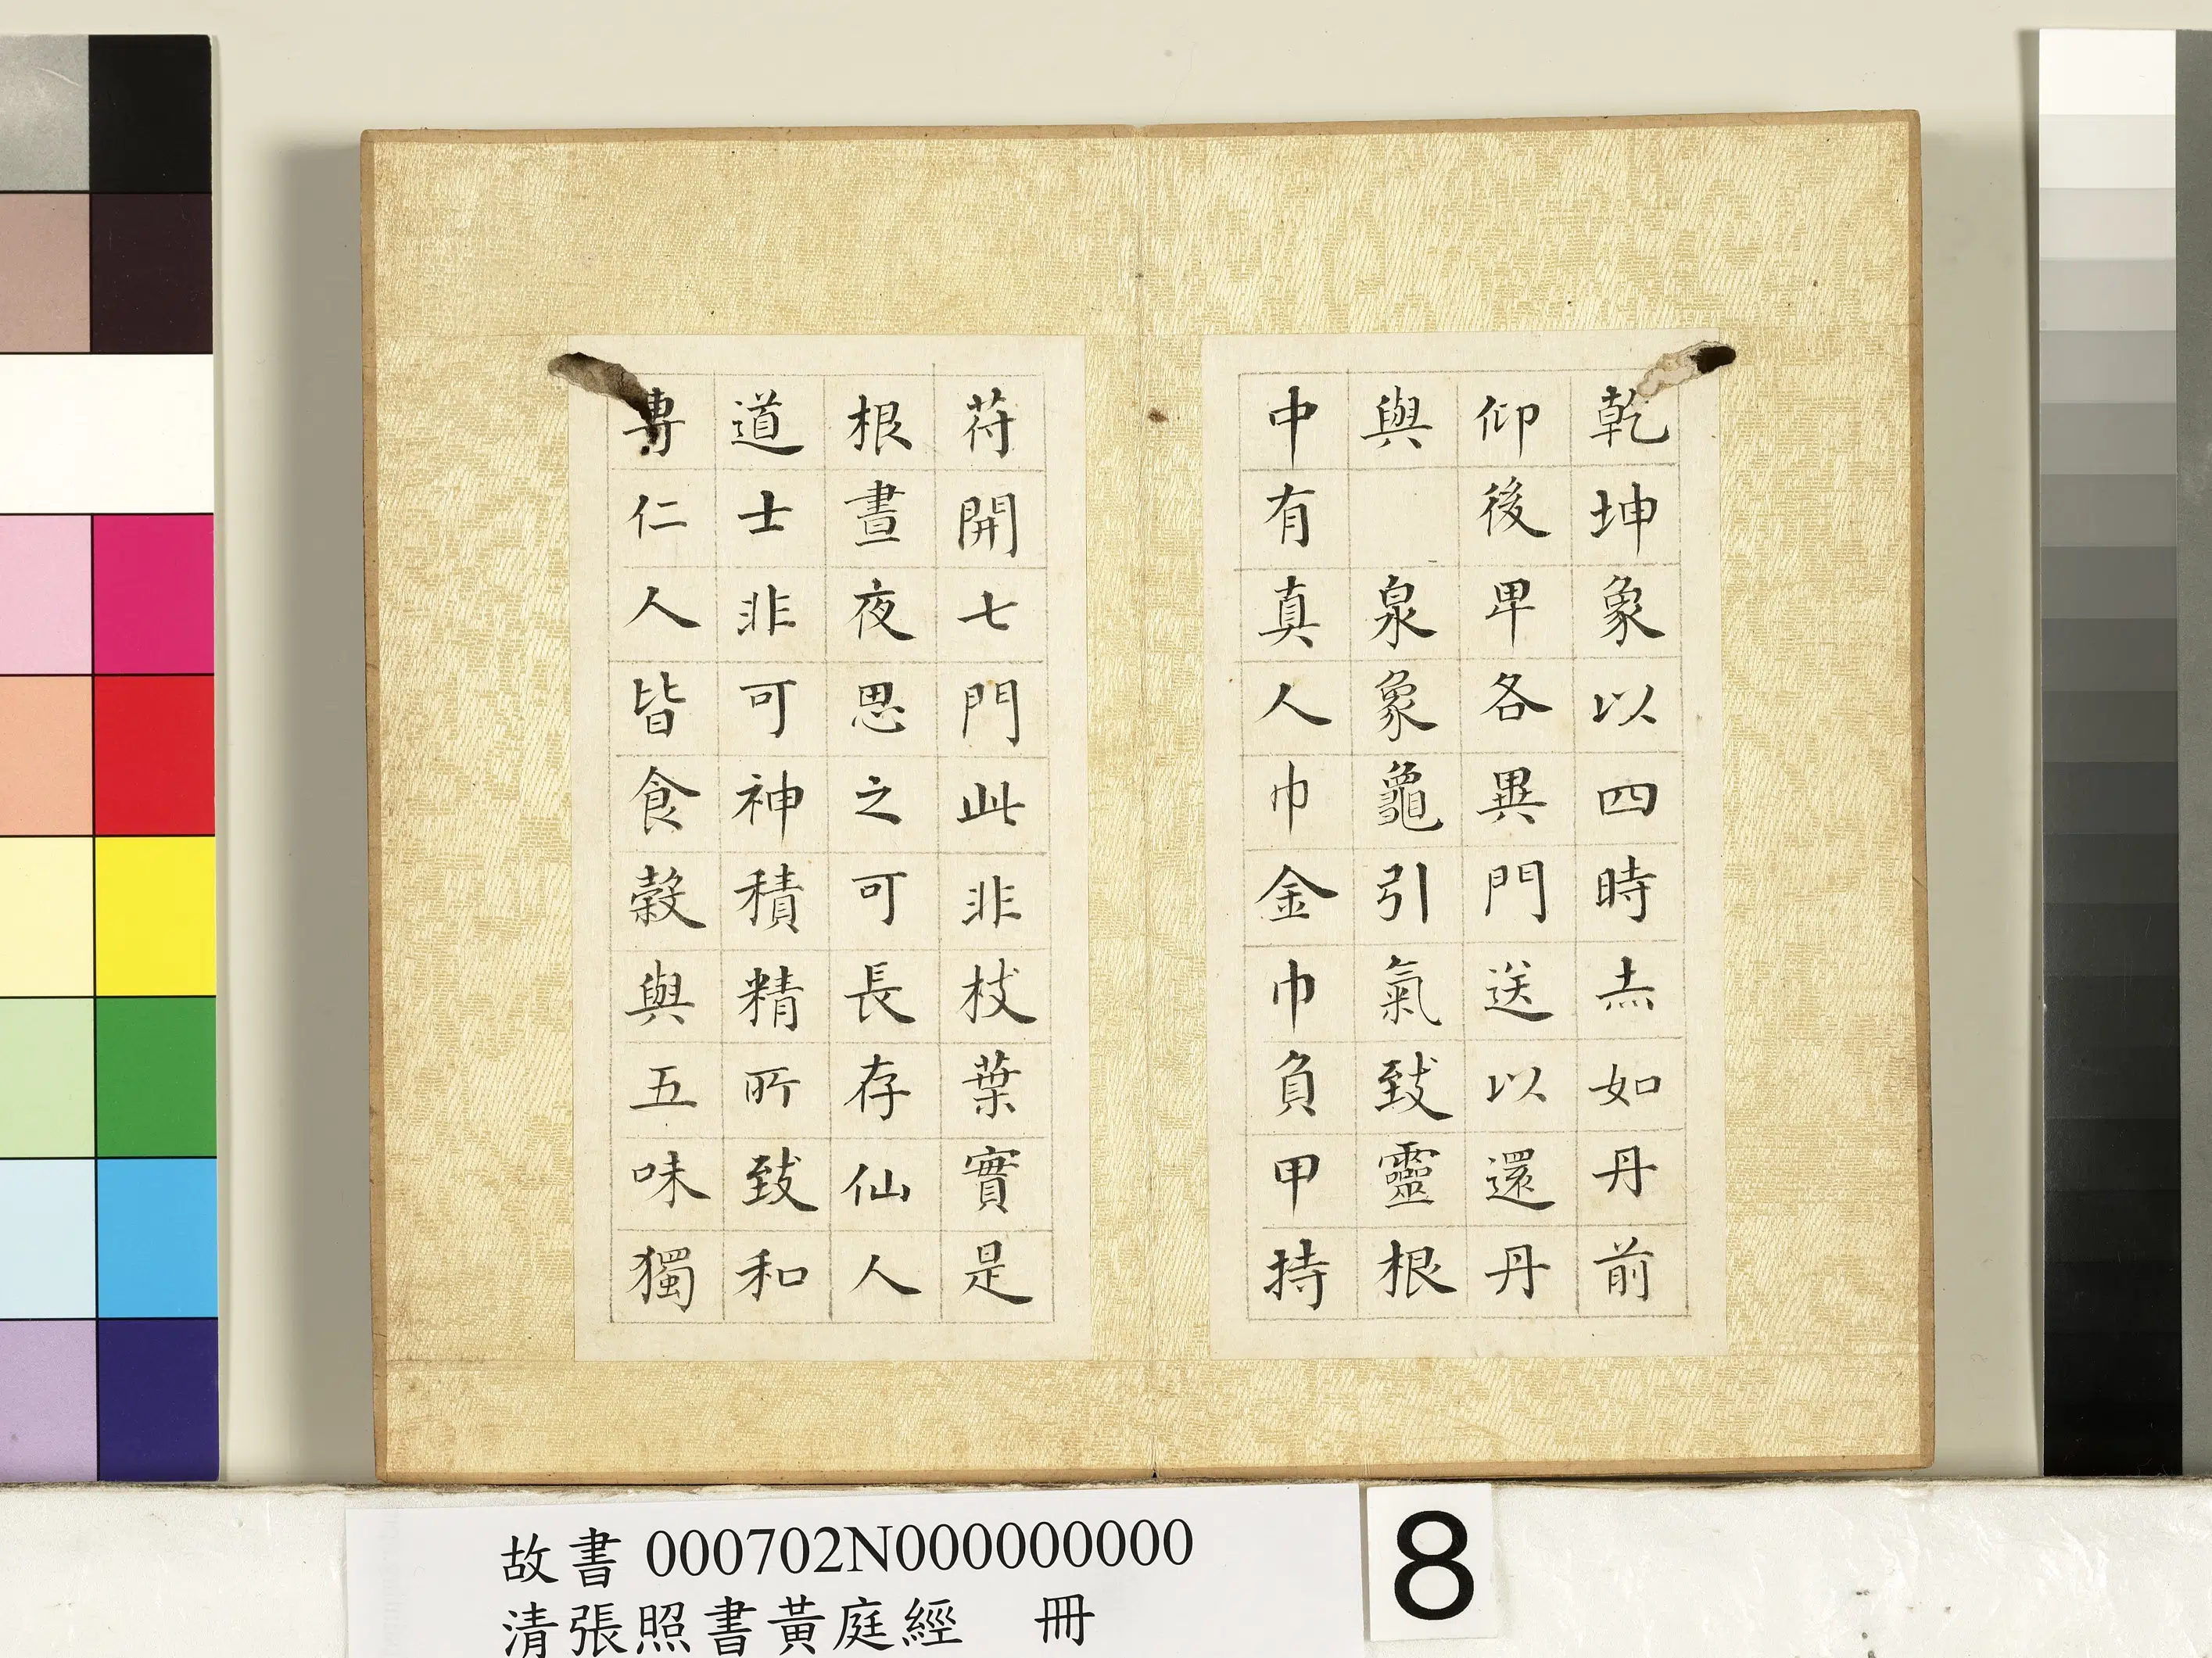 乾坤象以四時赤如丹前
仰後卑各異門送以還丹
與 泉象龜引氣致靈根
中有真人巾金巾負甲持
苻開七門此非枝葉實是
根晝夜思之可長存仙人
道士非可神積精所致和
專仁人皆食穀與五味獨
故書 000702N000000000
清張照書黃庭經 冊
8